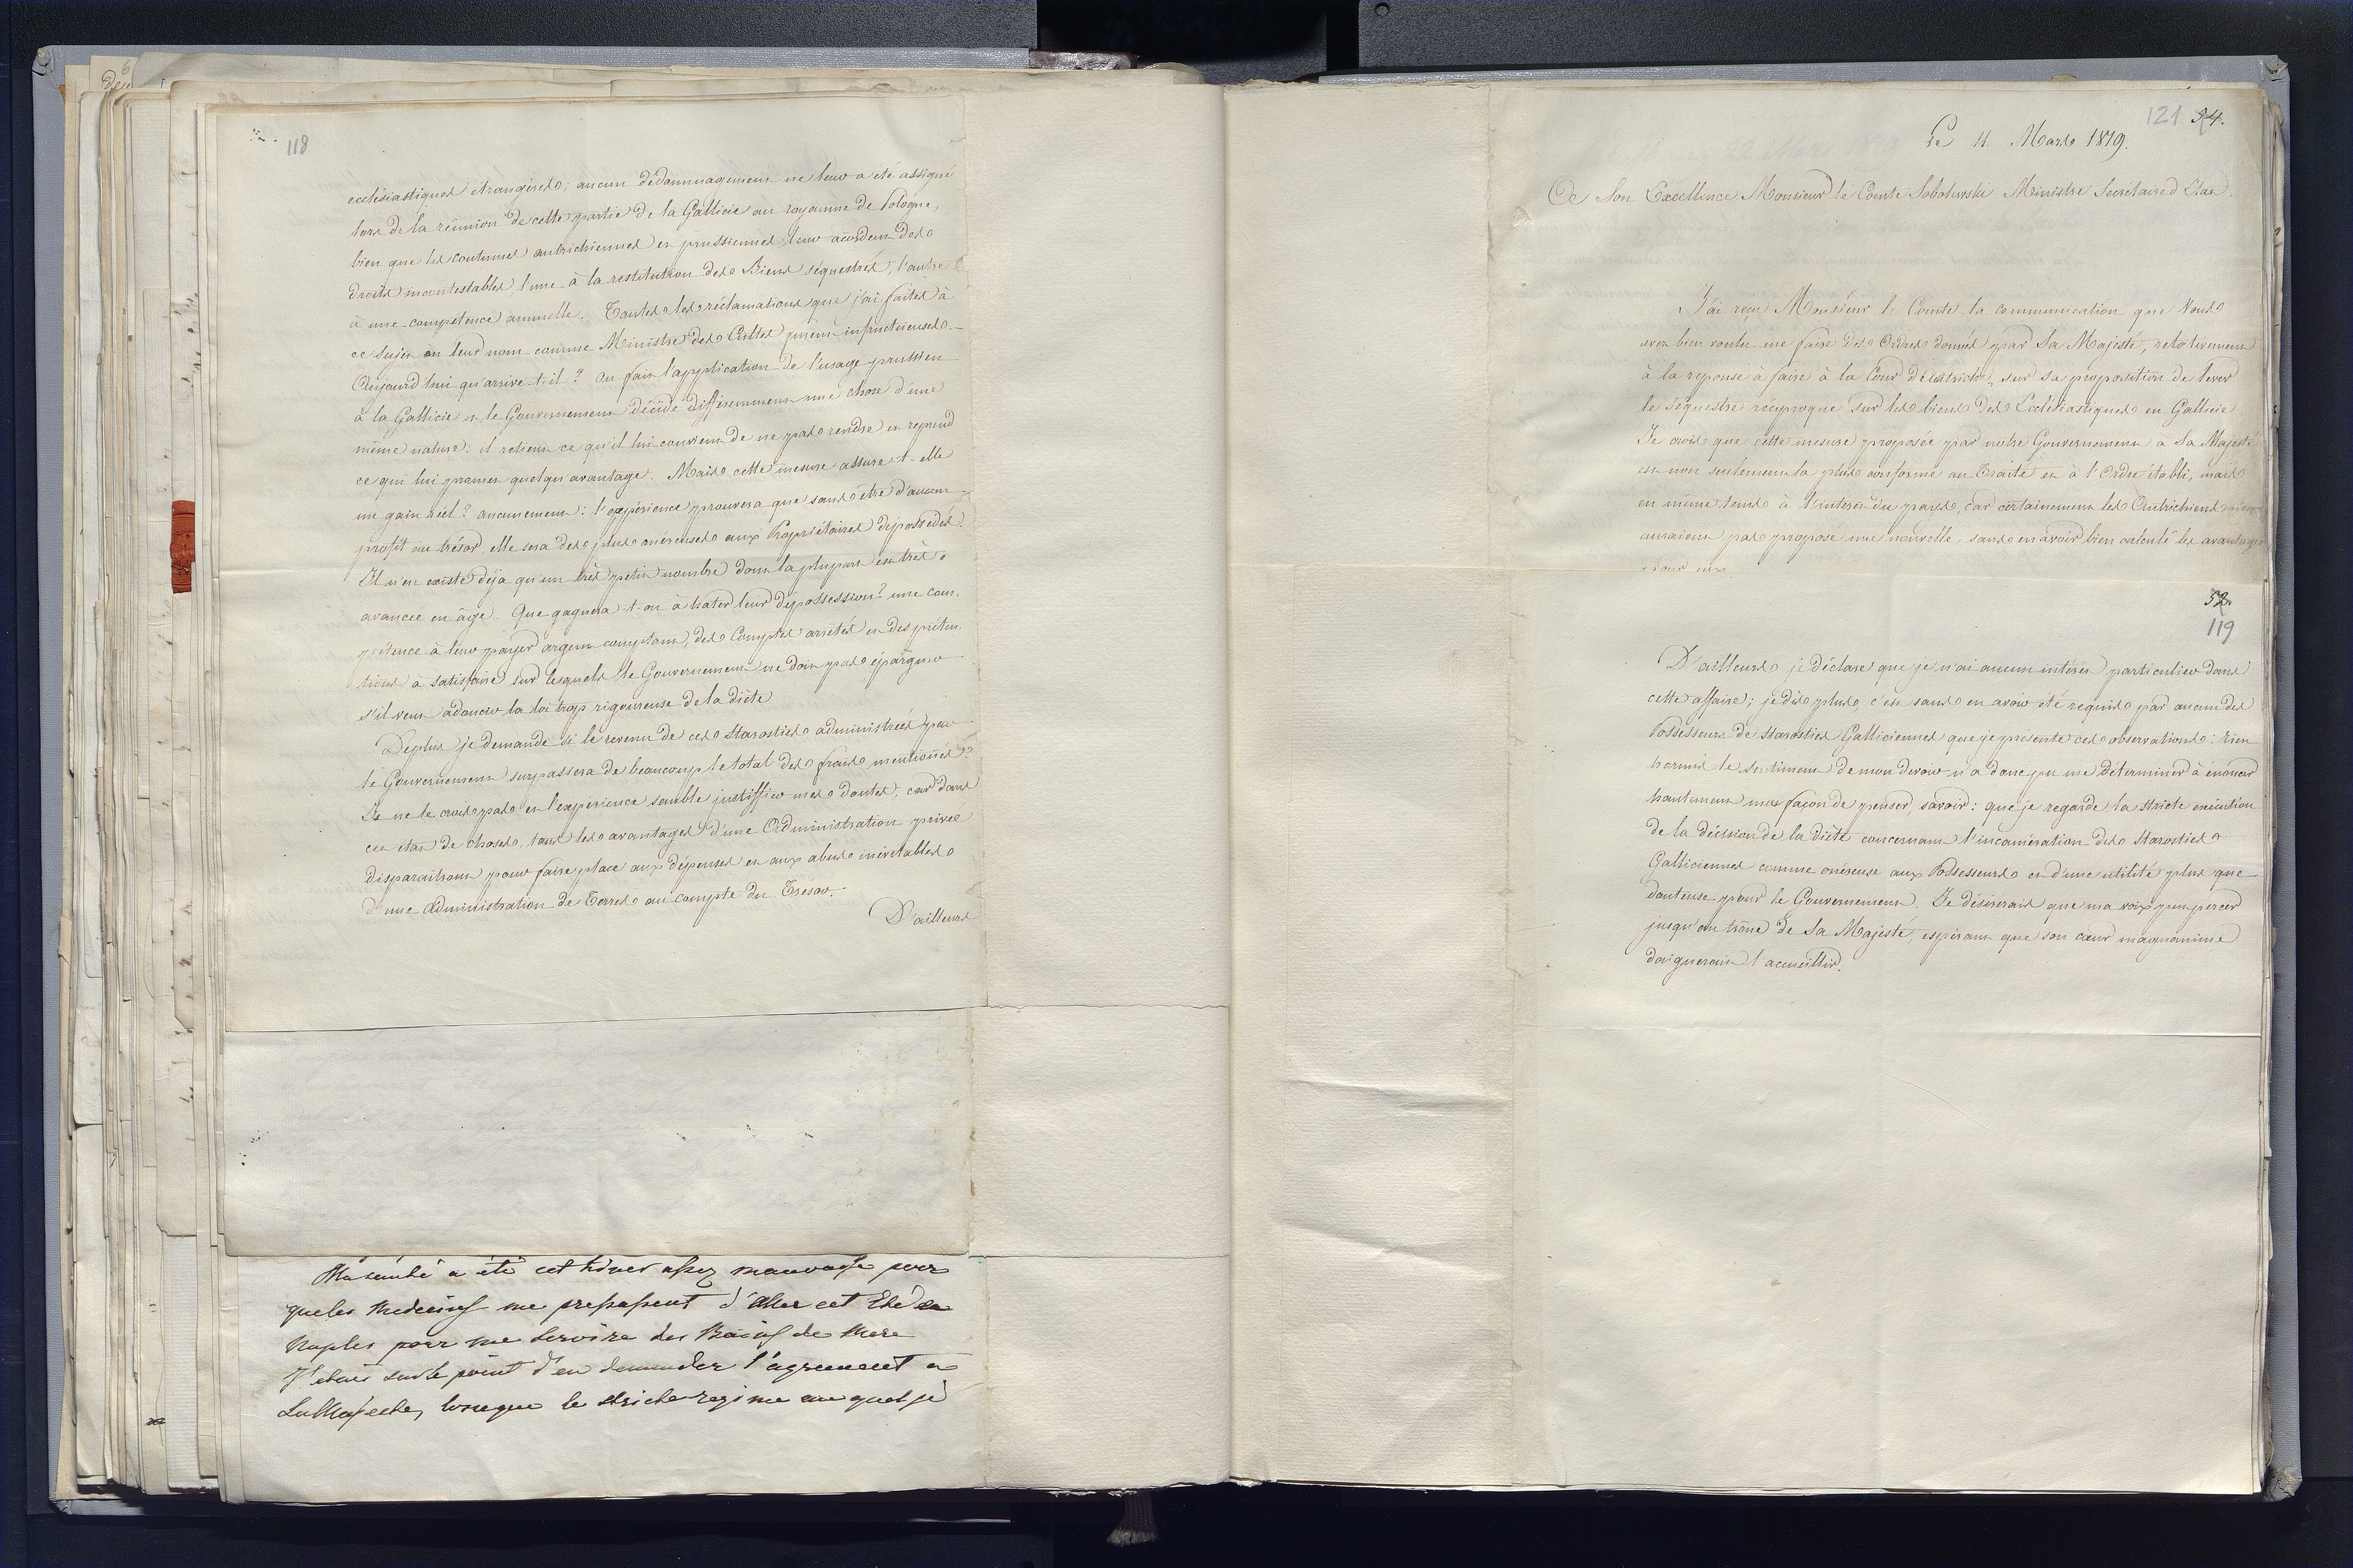 118
ecclésiastiques étrangers; aucun dédommagement ne leur a été assigné
lors de la réunion de cette partie de la Gallicie au royaume de Pologne,
bien que les coutumes autrichiennes et prussiennes leur accordent des
droits incontestables, l'une à la restitution des Biens séquestrés, l'autre
à une compétence annuelle. Toutes les réclamations que j'ai faites à
ce sujet en leur nom comme Ministre des Cultes furent infructueuses.
Aujourd'hui qu'arrive-t-il? On fait l'application de l'usage prussien
à la Gallicie et le Gouvernement décide différemment une chose d'une
même nature: il retient ce qu'il lui convient de ne pas rendre et reprend
ce qui lui promet quelqu'avantage. Mais cette mesure assure-t-elle
un gain réel? aucunement: l'expérience prouvera que sans être d'aucun
profit au trésor elle sera des plus onéreuses aux Propriétaires dépossédés.
Il n'en existe déja qu'un très petit nombre dont la plupart est très
avancée en âge. Que gagnera-t-on à hater leur dépossession? une com-
pétence à leur payer argent comptant, des Comptes arrêtés et des préten-
tions à satisfaire sur lesquels le Gouvernement ne doit pas épargner
s'il veut adoucir la loi trop rigoureuse de la diète
Deplus je demande si le revenu de ces Starosties administrées par
le Gouvernement surpassera de beaucoup le total des frais mentionnés?
Je ne le crois pas et l'expérience semble justiffier mes doutes, car dans
cet état de choses, tous les avantages d'une Administration privée
disparaitront pour faire place aux dépenses et aux abus inévitables
d'une Administration de Terres au compte du Trésor.
D'ailleurs
Ma santé a été cet hiver assez mauvaise pour
que les Medecins me proposent d'aller cet Eté a
Naples pour me servire des Bains de Mere
J'etais sur le point d'en demander l'agrement a
Sa Majesté, lorsque le stricte regime au quel je
121 54.
Le 11 Mars 1819.
A Son Excellence Monsieur le Comte Sobolewski Ministre Secrétaire d'Etat.
J'ai reçu Monsieur le Comte la communication que Vous
avez bien voulu me faire des Ordres donnés par Sa Majesté, relativement
à la reponse à faire à la Cour d'Autriche, sur sa proposition de lever
le séquestre réciproque sur les biens des Ecclésiastiques en Gallicie
Je crois que cette mesure proposée par notre Gouvernement a Sa Majesté
est non seulement la plus conforme au Traité et à l'Ordre établi, mais
en même tems à l'interêt du pays, car certainement les Autrichiens
auraient pas proposé une nouvelle, sans en avoir bien calculé les avantages
pour eux
52.
119
D'ailleurs je déclare que je n'ai aucun intérêt particulier dans
cette affaire; je dis plus, c'est sans en avoir été requis par aucun des
Possesseurs de Starosties Galliciennes que je présente ces observations: rien
hormis le sentiment de mon devoir n'a donc pu me déterminer à énoncer
hautement ma façon de penser, savoir: que je regarde la stricte exécution
de la décision de la diète concernant l'incamération des Starosties
Galliciennes comme onéreuse aux Possesseurs et d'une utilité plus que
douteuse pour le Gouvernement. Je désirerais que ma voix put percer
jusqu'au trône de Sa Majesté, espérant que son cœur magnanime
daignerait l'accueillir.